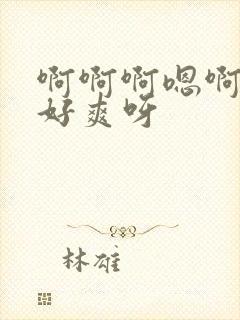 啊啊啊嗯啊
好爽呀
林雄